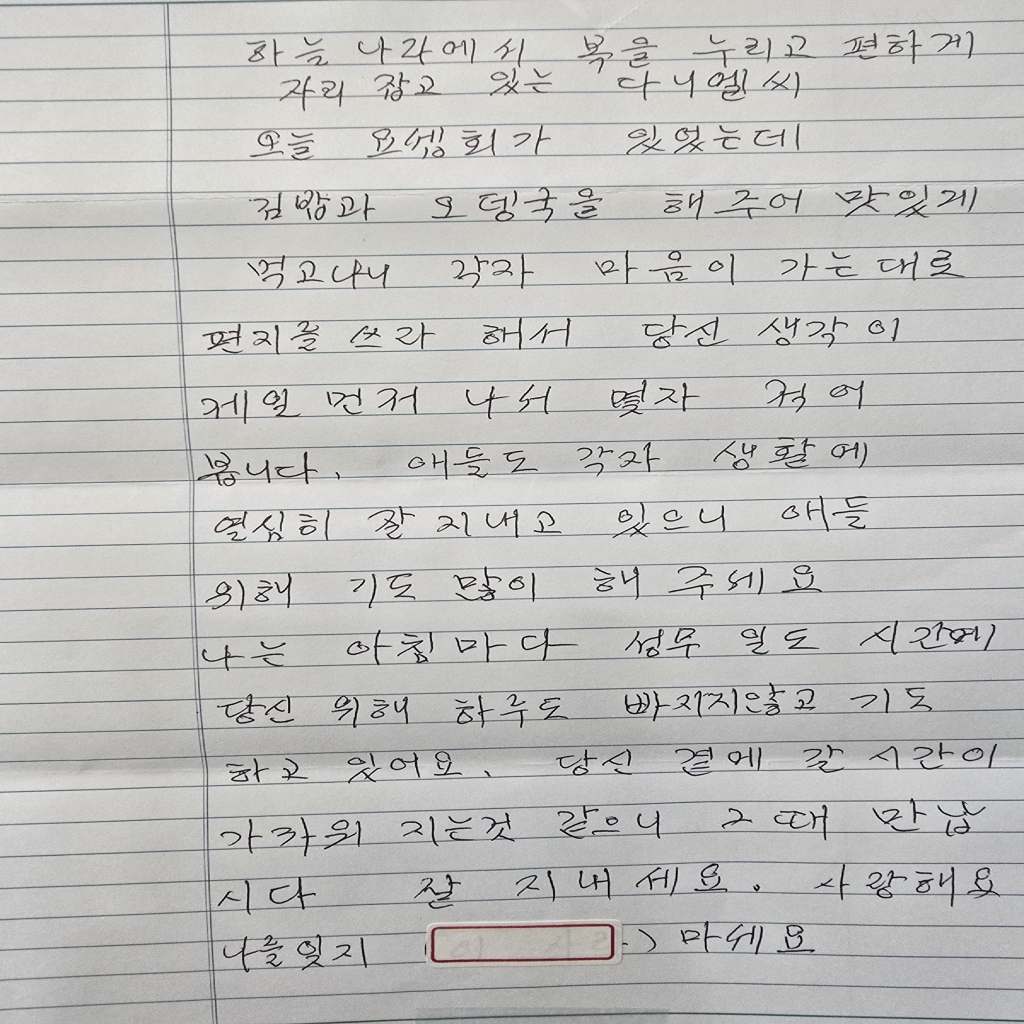 하늘 나라에서 복을 누리고 편하게
자리 잡고 있는 다니엘씨
오늘 요셉회가 있었는데
김밥과 오뎅국을 해 주어 맛있게
먹고나니 각자 마음이 가는대로
편지를 쓰라 해서 당신 생각이
제일 먼저 나서 몇자 적어
봅니다. 애들도 각자 생활에
열심히 잘 지내고 있으니 애들
위해 기도 많이 해 주세요
나는 아침마다 성무 일도 시간에
당신 위해 하루도 빠지지않고 기도
하고 있어요. 당신 곁에 갈 시간이
가까워 지는것 같으니 그때 만납
시다 잘 지내세요. 사랑해요
나를잊지 ) 마세요